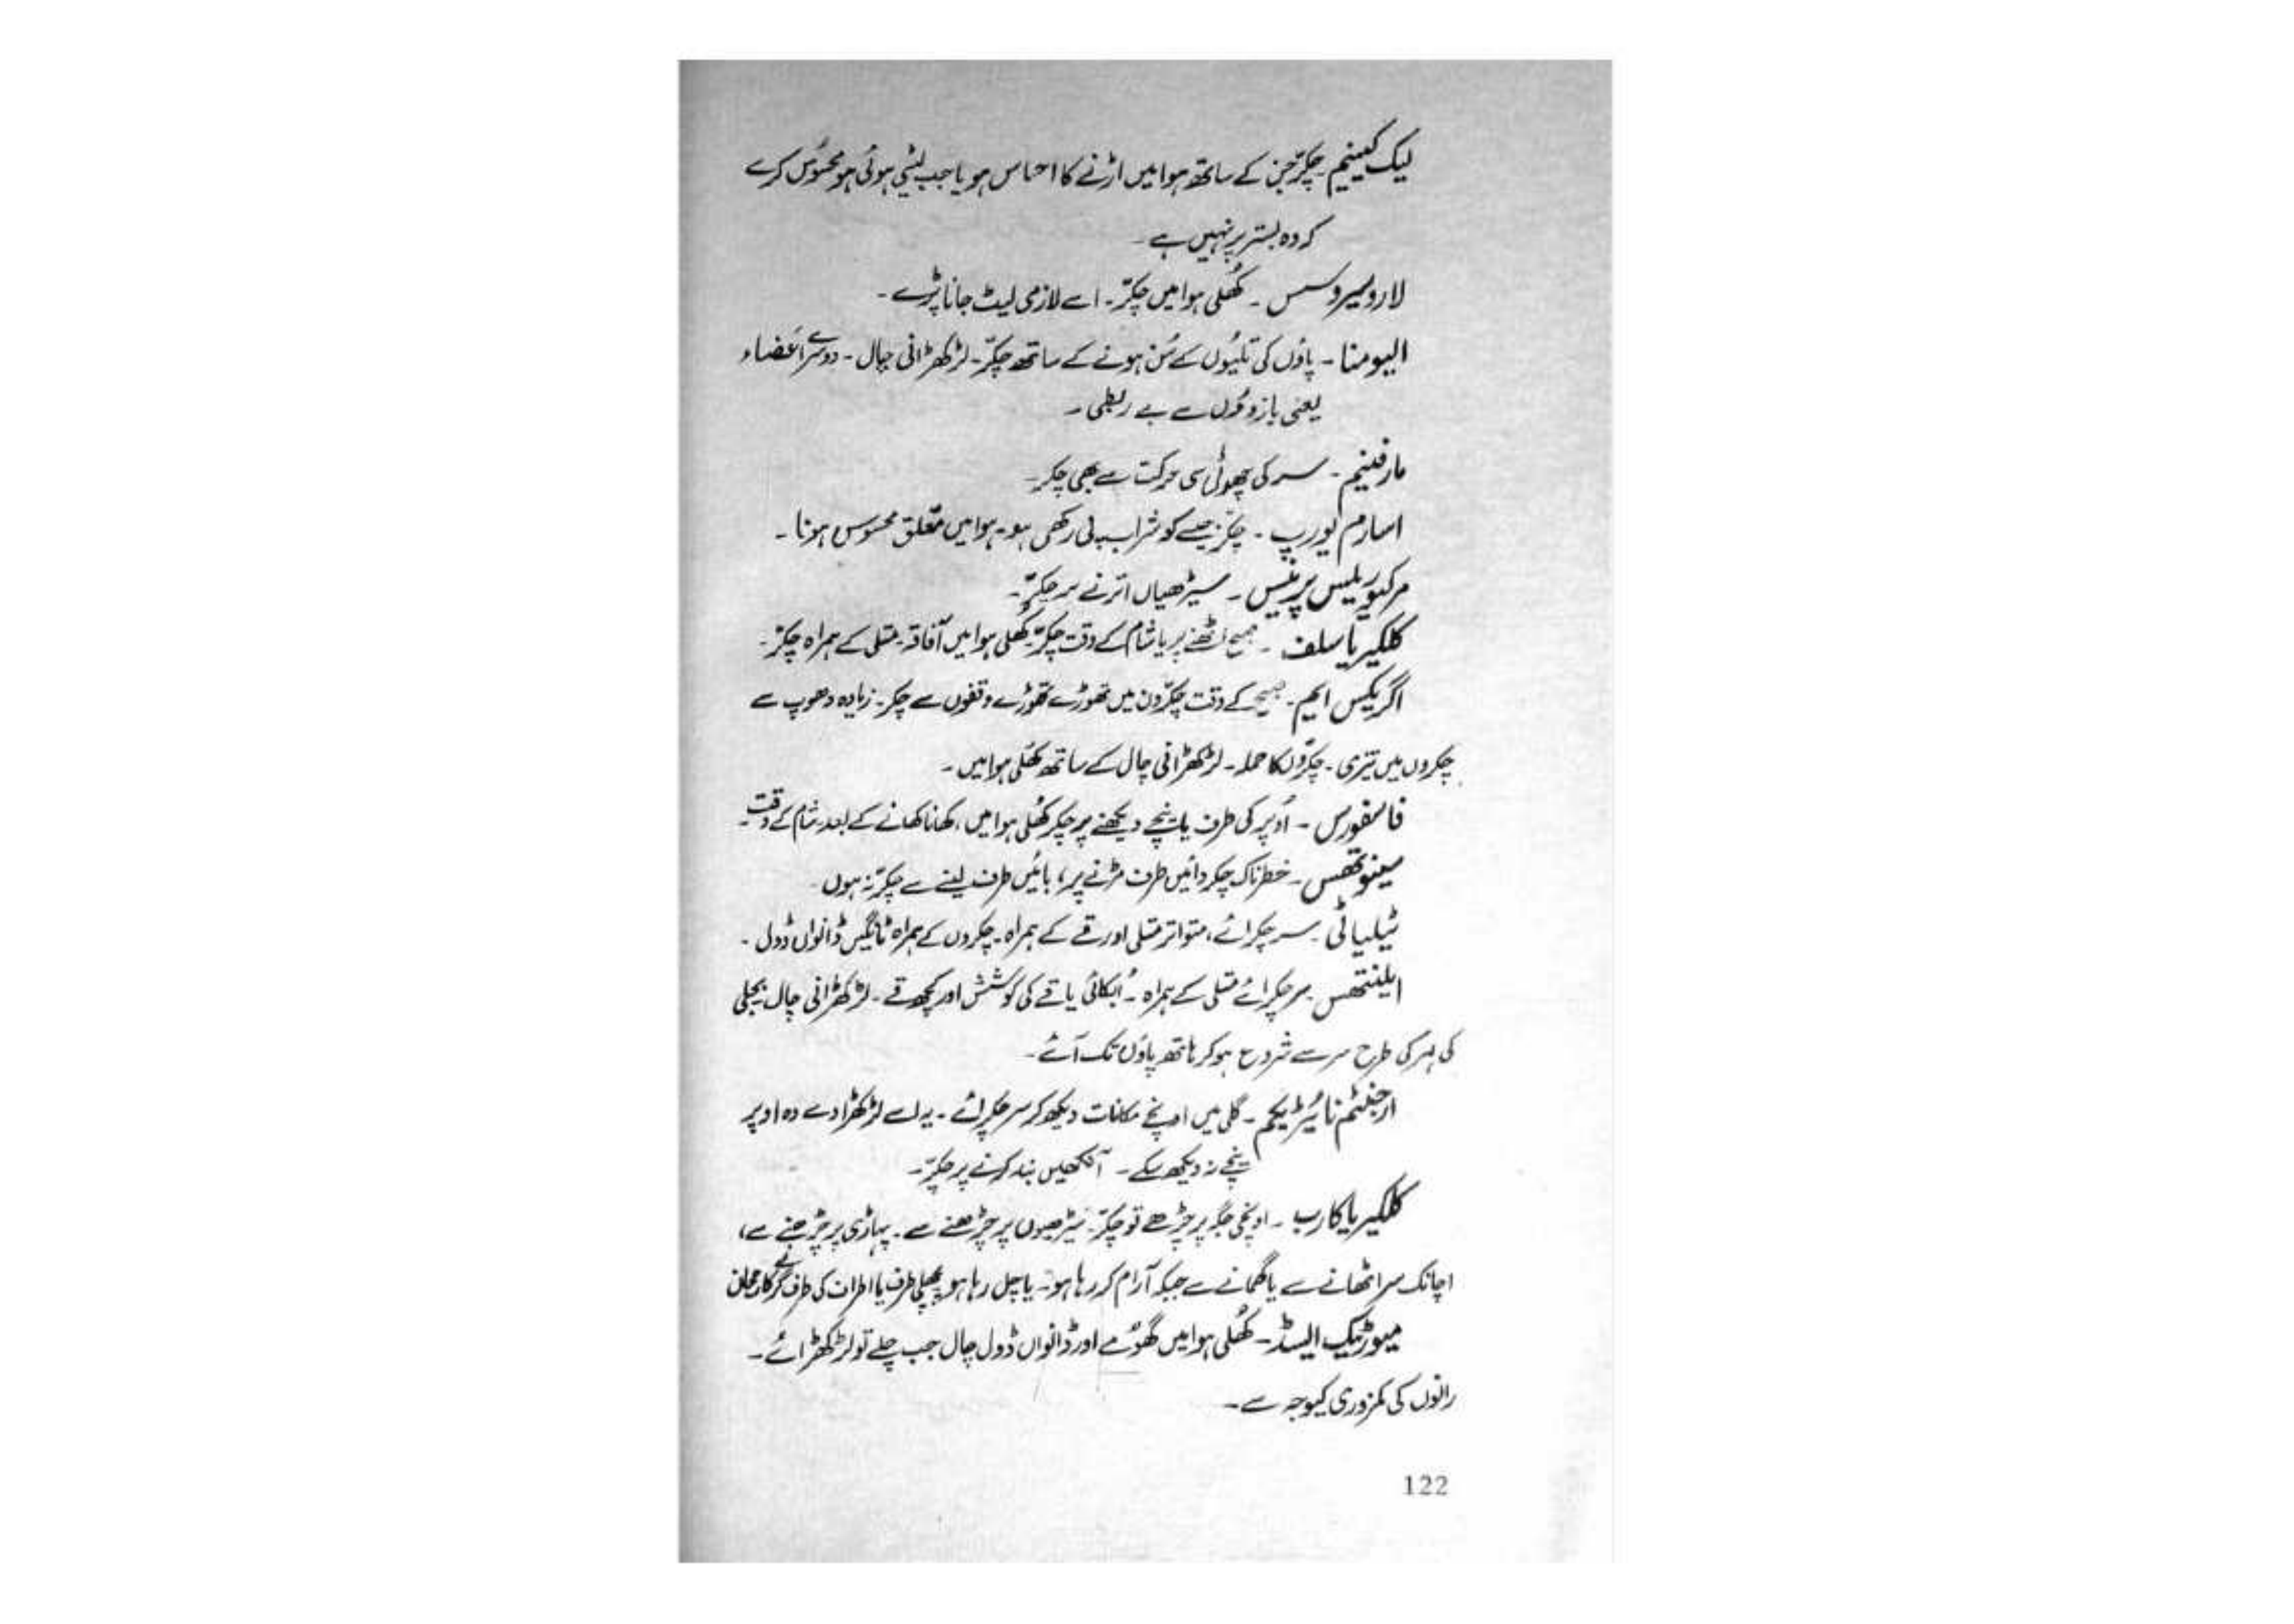 لیک کینینم۔ چکّر جن کے ساتھ ہوا میں اڑنے کا احساس ہو یا جب لیٹی ہوئی ہو محسُوس کرے
کہ وہ بستر پر نہیں ہے۔
لاروسیروسس ۔ کھُلی ہوا میں چکّر۔ اسے لازمی لیٹ جانا پڑے۔
الیومنا ۔ پاؤں کی تلیُوں کے سُن ہونے کے ساتھ چکّر۔ لڑکھڑانی چال ۔ دوسرے اَعضاء
یعنی بازوؤں سے بے ربطی ۔
مارفینیم ۔ سر کی چھوٹی سی حرکت سے بھی چکر۔
اسارم یورپ ۔ چکّر جیسے کو شراب پی رکھی ہو۔ ہوا میں معّلق محسوس ہونا ۔
مرکیوریلیس پرینیس ۔ سیڑھیاں اترنے پر چکّر۔
کلکیریا سلف ۔ صبح اٹھنے پر یا شام کے وقت چکّر۔ کھُلی ہوا میں آفاقہ۔ متلی کے ہمراہ چکّر۔
اگریکس ایم۔ صبح کے وقت چکّر دن میں تھوڑے تھوڑے وقفوں سے چکر۔ زیادہ دھوپ سے
چکروں میں تیزی۔ چکرّوں کا حملہ ۔ لڑکھڑانی چال کے ساتھ کھُلی ہوا میں ۔
فاسفورس ۔ اُوپر کی طرف یا نیچے دیکھنے پر چکر کھُلی ہوا میں، کھانا کھانے کے بعد شام کے وقت۔
مینوتھس ۔ خطرناک چکر دائیں طرف مڑنے پر، بائیں طرف لینے سے چکّر نہ ہوں
ٹیلیائی ۔ سر چکرائے، متواتر متلی اور قے کے ہمراہ ۔ چکروں کے ہمراہ ٹانگیں ڈانواں ڈول ۔
ایلینتھس ۔ سر چکرائے متلی کے ہمراہ ۔ اُبکائی یا قے کی کوشش اور کچھ قے ۔ لڑکھڑانی چال بجلی
کی لہر کی طرح سر سے شروع ہو کر ہاتھ پاؤں تک آئے ۔
ارجنٹم نائیٹریکم ۔ گلی میں اونچے مکانات دیکھ کر سر چکرائے ۔ یہ اسے لڑکھڑا دے وہ اوپر
نیچے نہ دیکھ سکے ۔ آنکھیں بند کرنے پر چکّر۔
کلکیریا کارب ۔ اونچی جگہ پر چڑھے تو چکّر۔ سیڑھیوں پر چڑھنے سے ۔ پہاڑی پر چڑھنے سے،
اچانک سر اٹھانے سے یا گھمانے سے جبکہ آرام کر رہا ہو۔ یا چل رہا ہو پچھلی طرف یا اطراف کی طرف گرنے کا رجحان
میورٹیک ایسڈ ۔ کھُلی ہوا میں گھوُمے اور ڈانواں ڈول چال جب چلے تو لڑکھڑائے ۔
رانوں کی کمزوری کیوجہ سے ۔
122